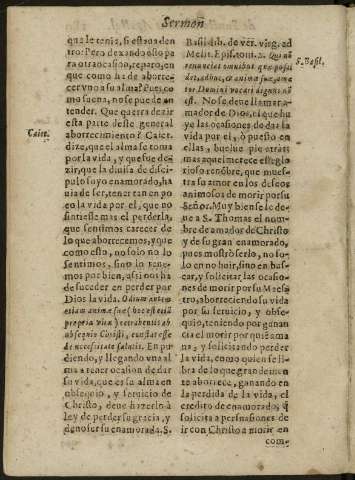 Sermon
que le tenia, si estaua den
tro? Pero dexando esto pa
ra otra ocasion, reparo, en
que como ha de aborre-
cer vno a su alma? Pues, co
mo suena, no se puede en
tender. Que querra dezir
esta parte deste general
aborrecimiento? Caiet.
Caiet.
dize, que el alma se toma
por la vida, y que fue de-
zir, que la diuisa de disci-
pulo suyo enamorado, ha
uia de ser, tener tan en po
co la vida por el, que no
sintiesse mas el perderla,
que sentimos carecer de
lo que aborrecemos, y que
como esto, no solo no lo
sentimos, sino lo tene-
mos por bien, assi nos ha
de suceder en perder por
Dios la vida. Odium autem
etiam animæ suæ, hoc est vitæ
propriæ vt à retrahentis ab
obsequio Christi, constat esse
de necessitate salutis. En pu
diendo, y llegando vna al
ma a tener ocasion de dar
su vida, que es su alma en
obsequio, y seruicio de
Christo, deue hazerlo à
ley de perder su gracia, y
de no ser su enamorada. S.
Basil. lib. de ver. virg. ad
Melit. Epis. tom. 2. Qui nõ
S. Basil.
renunciat omnibus quæ possi
det, adhuc, & animæ suæ, ama
tor Domini vocari dignus nõ
est. No se deue llamar a-
mador de Dios, el que hu
ye las ocasiones de dar la
vida por el, ò puesto en
ellas, buelue pie atras:
mas aquel merece este glo
rioso renõbre, que mues-
tra su amor en los deseos
animosos de morir por su
Señor. Muy bien se le de-
ue a S. Thomas el nom-
bre de amador de Christo
y de su gran enamorado,
pues mostrò serlo, no so-
lo en no huir, sino en bus-
car, y solicitar las ocasio-
nes de morir por su Maes
tro, aborreciendo su vida
por su seruicio, y obse-
quio, teniendo por ganan
cia el morir por quiẽ ama
na, y solicitando perder
la vida, como quien se li-
bra de lo que grandemen
te aborrece, ganando en
la perdida de la vida, el
credito de enamorado, q̃
solicita a persuasiones de
ir con Christo a morir en
com-